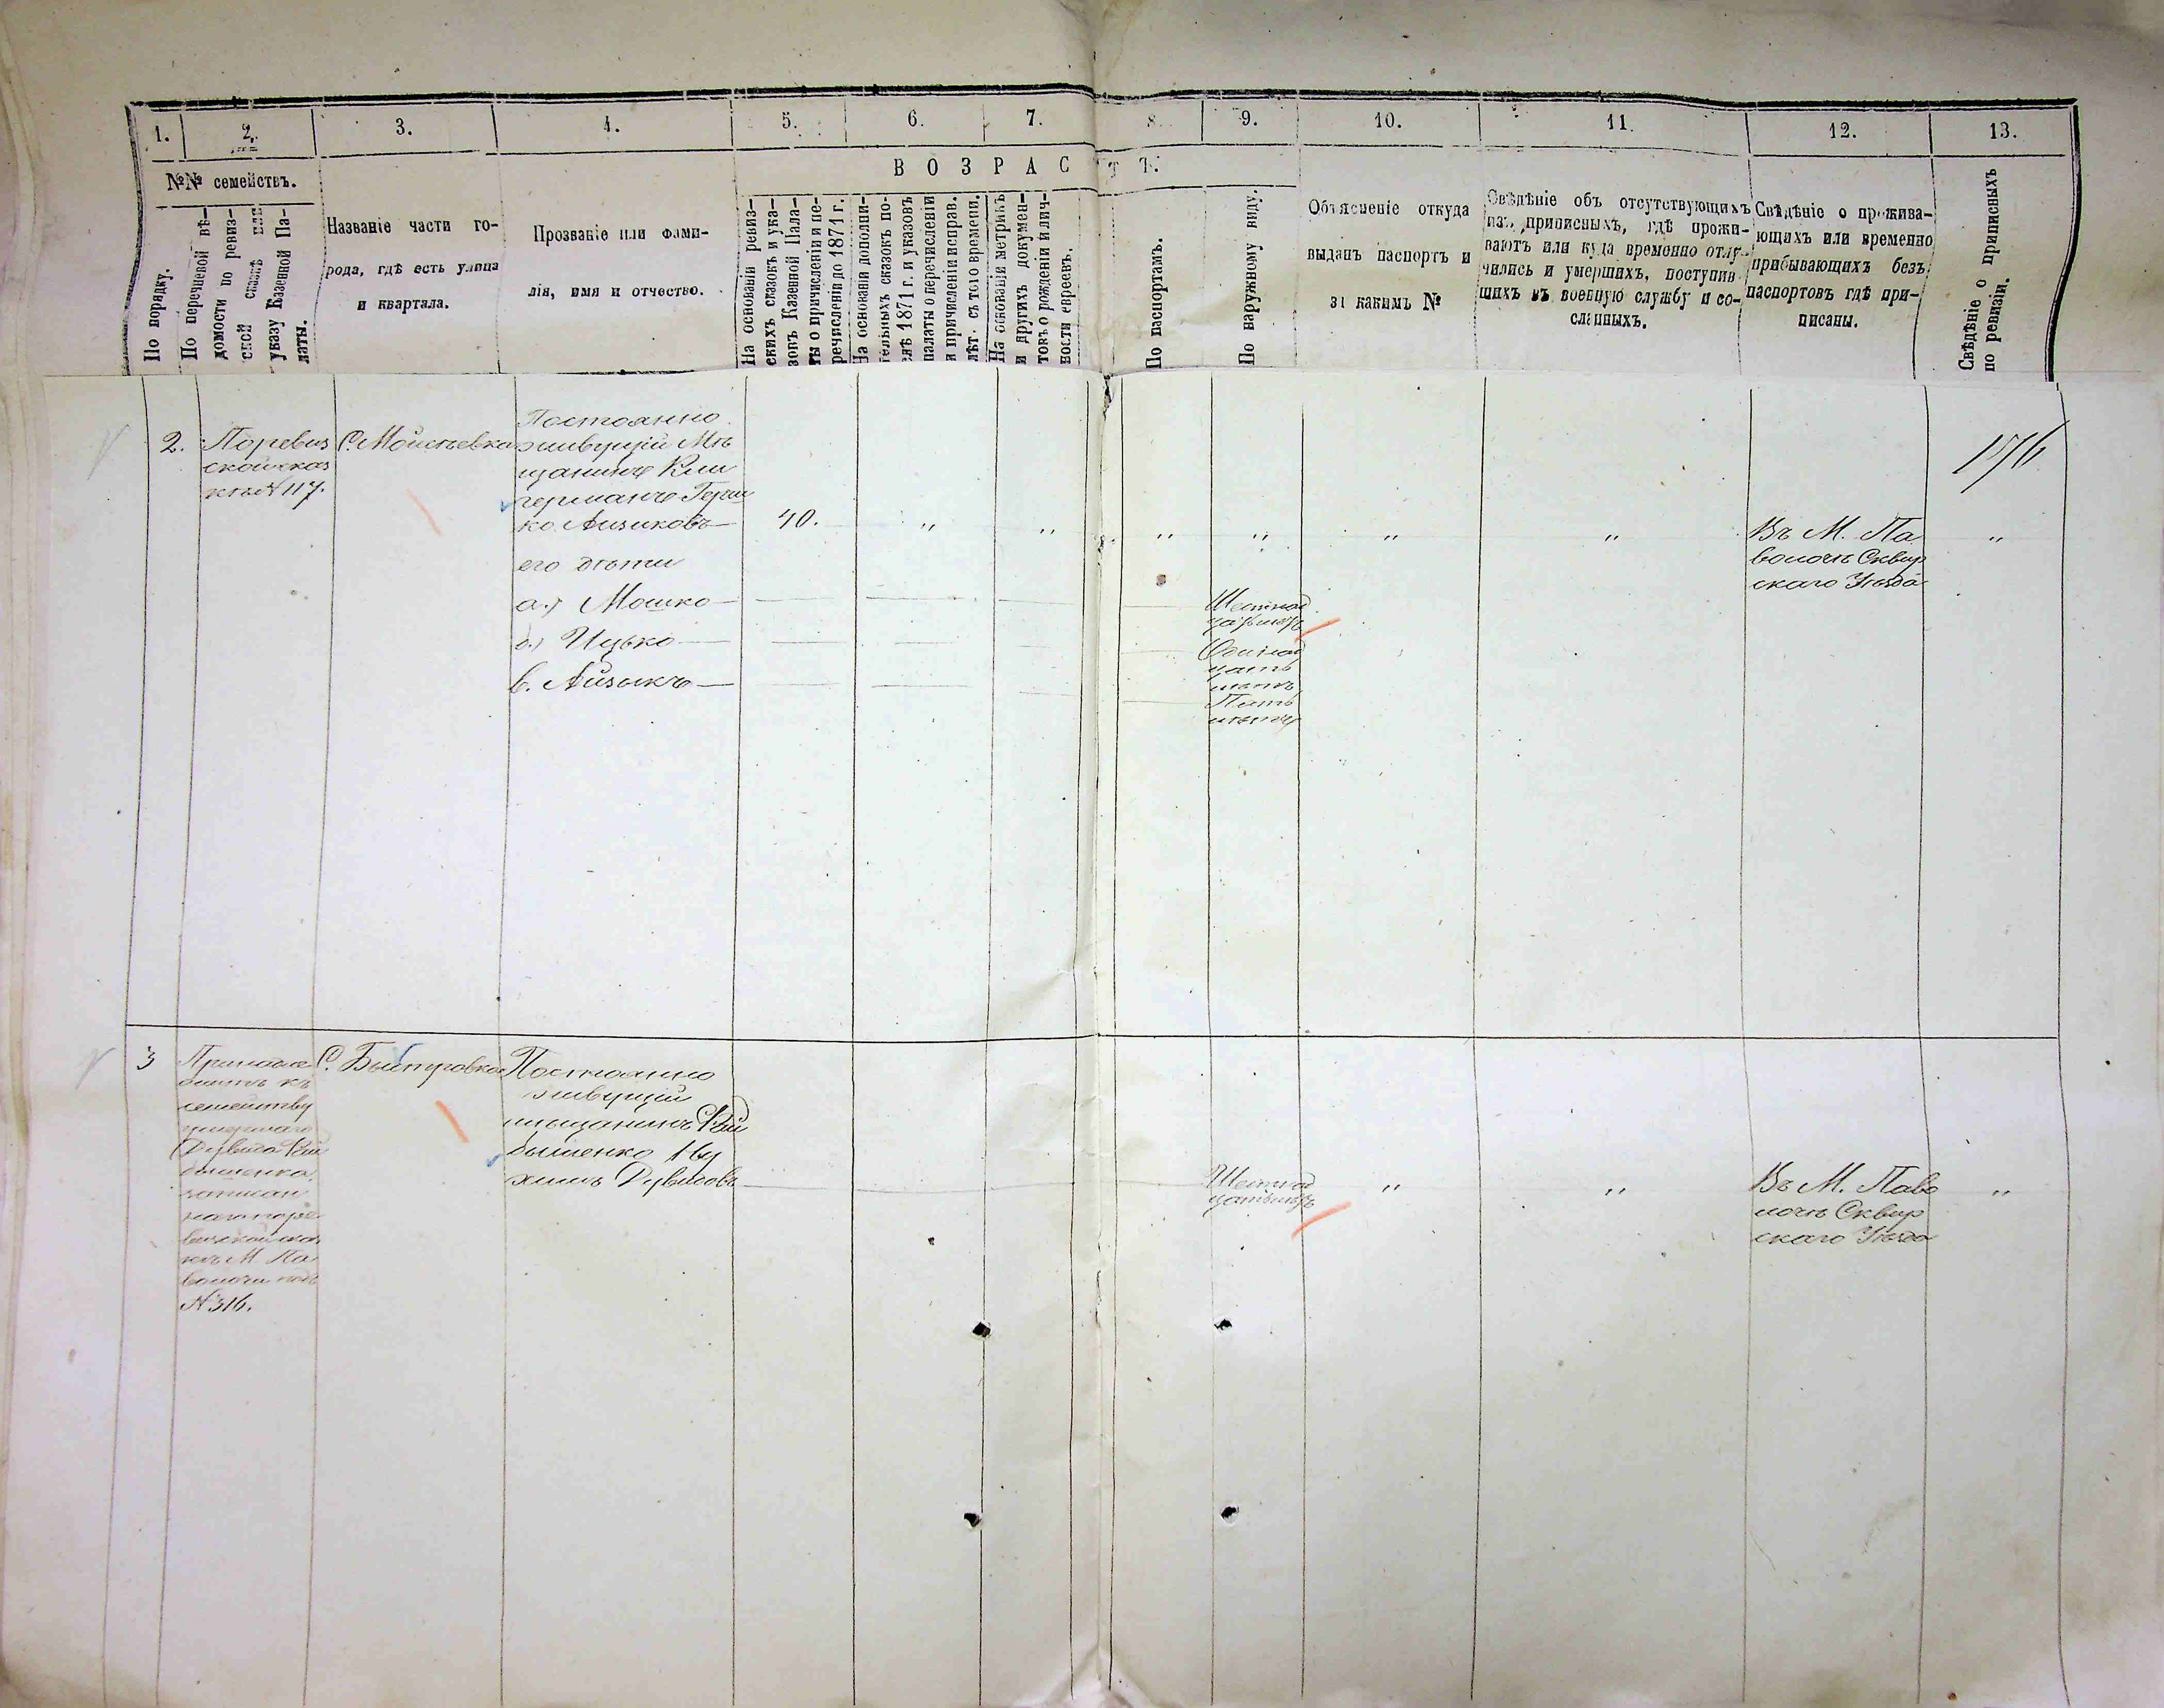 1.
2.
3.
4.
5.
6.
7.
8.
9.
10.
11.
12.
13.
В О З Р А С Т Ъ.
№№ семействъ.
По порядку.
По перечневой вѣ-
домости по ревиз-
ской сказкѣ или
указу Казенной Па-
латы.
Названіе части го-
рода, гдѣ есть улица
и квартала.
Прозваніе или фами-
лія, имя и отчество.
На основаніи ревиз-
скихъ сказокъ и ука-
зовъ Казенной Пала-
ты о причисленіи и пе-
речисленіи до 1871 г.
На основаніи дополни-
тельныхъ сказокъ по-
слѣ 1871 г. и указовъ
палаты о перечисленіи
и причисленіи исправ.
лѣт. съ того времени.
На основаніи метрикъ
и другихъ докумен-
товъ о рожденіи и лич-
ности евреевъ.
По паспортамъ.
По наружному виду.
Объясненіе откуда
выданъ паспортъ и
за какимъ №
Свѣдѣніе объ отсутствующихъ
изъ приписныхъ, гдѣ прожи-
ваютъ или куда временно отлу-
чились и умершихъ, поступив-
шихъ въ военную службу и со-
сланныхъ.
Свѣдѣніе о прожива-
ющихъ или временно
прибывающихъ безъ
паспортовъ гдѣ при-
писаны.
Свѣдѣніе о приписныхъ
по ревизіи.
2.
По ревиз
ской сказ
кѣ № 117.
С. Моисѣевка
Постоянно
живущій Мѣ
щанинъ Кли
германъ Герш
ко Аизиковъ
40.
его дѣти
а.) Мошко
б.) Ицько
в. Айзыкъ
Шестнад
цать лѣтъ
Одинад
цать
лѣтъ
Пять
лѣтъ
Въ М. Па
волочѣ Сквир
скаго Уѣзда
176
3
Принадле
житъ къ
семейству
умершаго
Дувида
записан
наго по ре
визской сказ
кѣ М. Па
волочи подъ
№ 316.
С. Быстровка
Постоянно
живущій
мѣщанинъ
Ну
химъ Дувидовъ
Шестнад
цать лѣтъ
Въ М. Паво
лочѣ Сквир
скаго Уѣзда